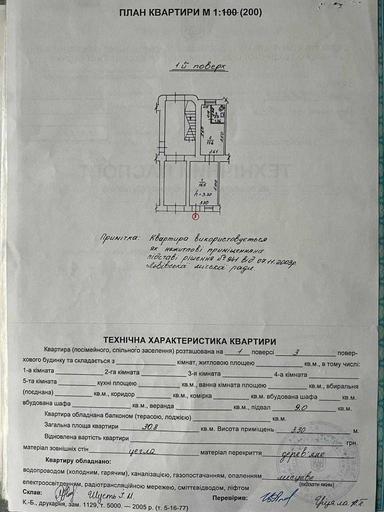 ПЛАН КВАРТИРИ М 1:100 (200)
1й поверх
h=3.30
Примітка: Квартира використовується
як нежитлові приміщення на
підставі рішення №941 від 07.11.2003р.
Львівська міська рада.
ТЕХНІЧНА ХАРАКТЕРИСТИКА КВАРТИРИ
Квартира (посімейного, спільного заселення) розташована на 1 поверсі 3 повер-
хового будинку та складається з кімнат, житловою площею кв.м., в тому числі:
1-а кімната 2-га кімната 3-я кімната 4-а кімната
5-та кімната кухні площею кв.м., ванна кімната площею кв.м., вбиральня
(поєднана) кв.м., коридор кв.м., комірка кв.м. вбудована шафа кв.м.
вбудована шафа кв.м., веранда кв.м., підвал 9.0 кв.м.
Квартира обладнана балконом (терасою, лоджією) кв.м.
Загальна площа квартири 30.8 кв.м. Висота приміщень 3.30 м.
Відновлена вартість квартири грн.
матеріал зовнішніх стін цегла матеріал перекриття дерев'яне
Квартиру обладнано:
водопроводом (холодним, гарячим), каналізацією, газопостачанням, опаленням місцеве
електроосвітленням, радіотрансляційною мережею, сміттєвідводом, ліфтом
Склав: Перевірив:
К.-Б., друкарня, зам. 1129, т. 5000. — 2005 р. (т. 5-16-77)